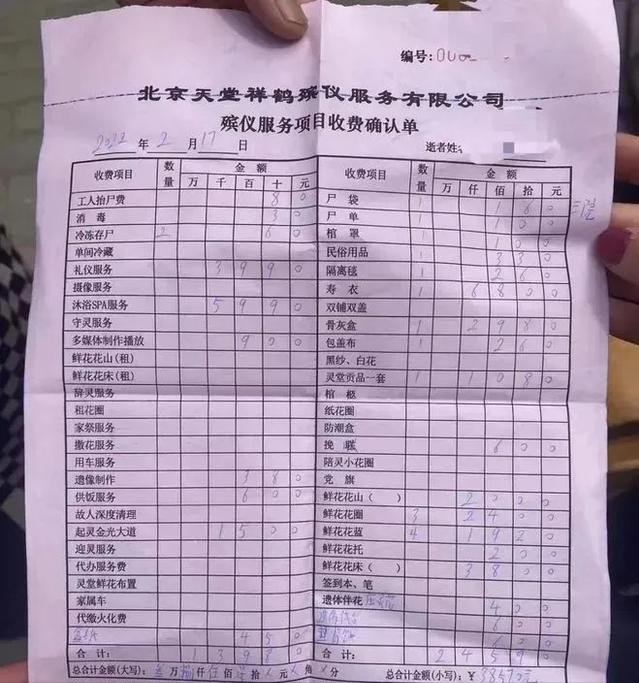 编号:
北京天堂祥鹤殡仪服务有限公司
殡仪服务项目收费确认单
2022 年 2 月 17 日 逝者姓
收费项目 数量 金额 万 千 百 十 元
工人抬尸费 8 0
消毒 3 0
冷冻存尸 2 6 0
单间冷藏
礼仪服务 3 9 9 0
摄像服务
沐浴SPA服务 5 9 9 0
守灵服务
多媒体制作播放 9 0 0
鲜花花山(租)
鲜花花床(租)
辞灵服务
租花圈
家祭服务
撒花服务
用车服务
遗像制作 3 8 0
供饭服务 6 0 0
故人深度清理
起灵金光大道 1 5 0 0
迎灵服务
代办服务费
灵堂鲜花布置
家属车
代缴火化费
4 5 0
合计: 1 3 9 8 0
收费项目 数量 金额 万 仟 佰 拾 元
尸袋 1 1 6 0
尸单 1 1 0 0
棺罩 1 1 0 0
民俗用品 1 3 3 0
隔离毯 1 2 6 0
寿衣 1 6 8 0 0
双铺双盖
骨灰盒 1 2 9 8 0
包盖布 1 2 6 0
黑纱、白花
灵堂贡品一套 1 1 0 8 0
棺柩
纸花圈
防潮盒
挽联 6 0 0
陪灵小花圈
党旗
鲜花花山( ) 2 0 0 0
鲜花花圈 3 2 4 0 0
鲜花花蓝 4 1 9 2 0
鲜花花托 2 0 0
鲜花花床( ) 3 8 0 0
签到本、笔
遗体伴花 4 0 0
6 0 0
6 0 0
合计: 2 4 5 9 0
总合计金额(大写): 叁万捌仟伍佰柒拾 元 角 分 总合计金额(小写): ¥38570元